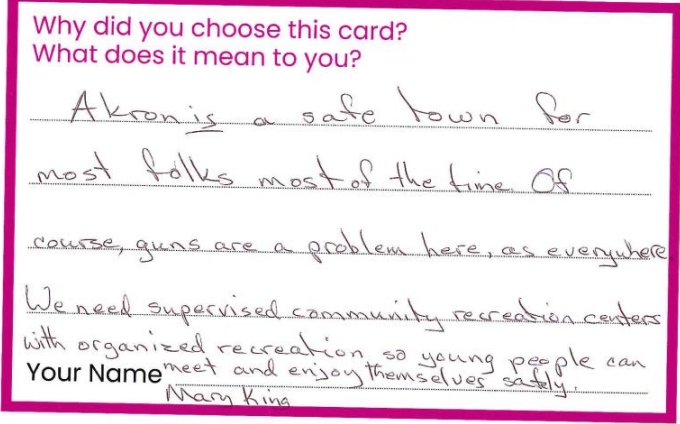 Why did you choose this card?
What does it mean to you?
Akron is a safe town for
most folks most of the time. Of
course, guns are a problem here, as everywhere.
We need supervised community recreation centers
with organized recreation, so young people can
meet and enjoy themselves safely.
Your Name
Mary King